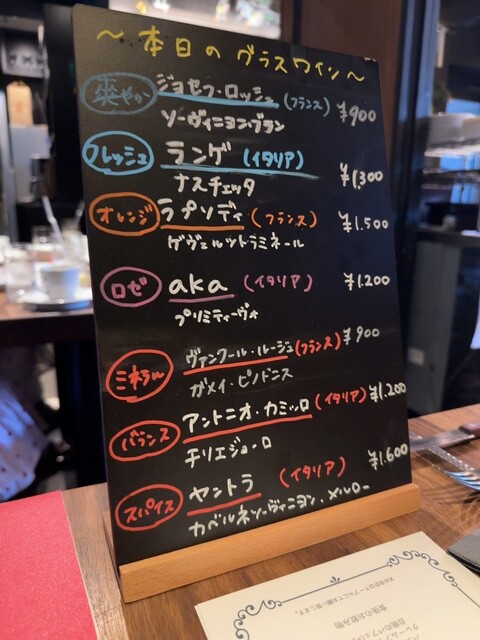 ～本日のグラスワイン～
爽やか ジョセフ・ロッシュ (フランス) ¥900
ソーヴィニヨン・ブラン
フレッシュ ランゲ (イタリア) ¥1,300
ナスチェッタ
オレンジ ラプソディ (フランス) ¥1,500
ゲヴェルツトラミネール
ロゼ aka (イタリア) ¥1,200
プリミティーヴォ
ミネラル ヴァンクール・ルージュ (フランス) ¥900
ガメイ・ピノドニス
バランス アントニオ・カミッロ (イタリア) ¥1,200
チリエジョーロ
スパイス ヤントラ (イタリア) ¥1,600
カベルネソーヴィニヨン・メルロー